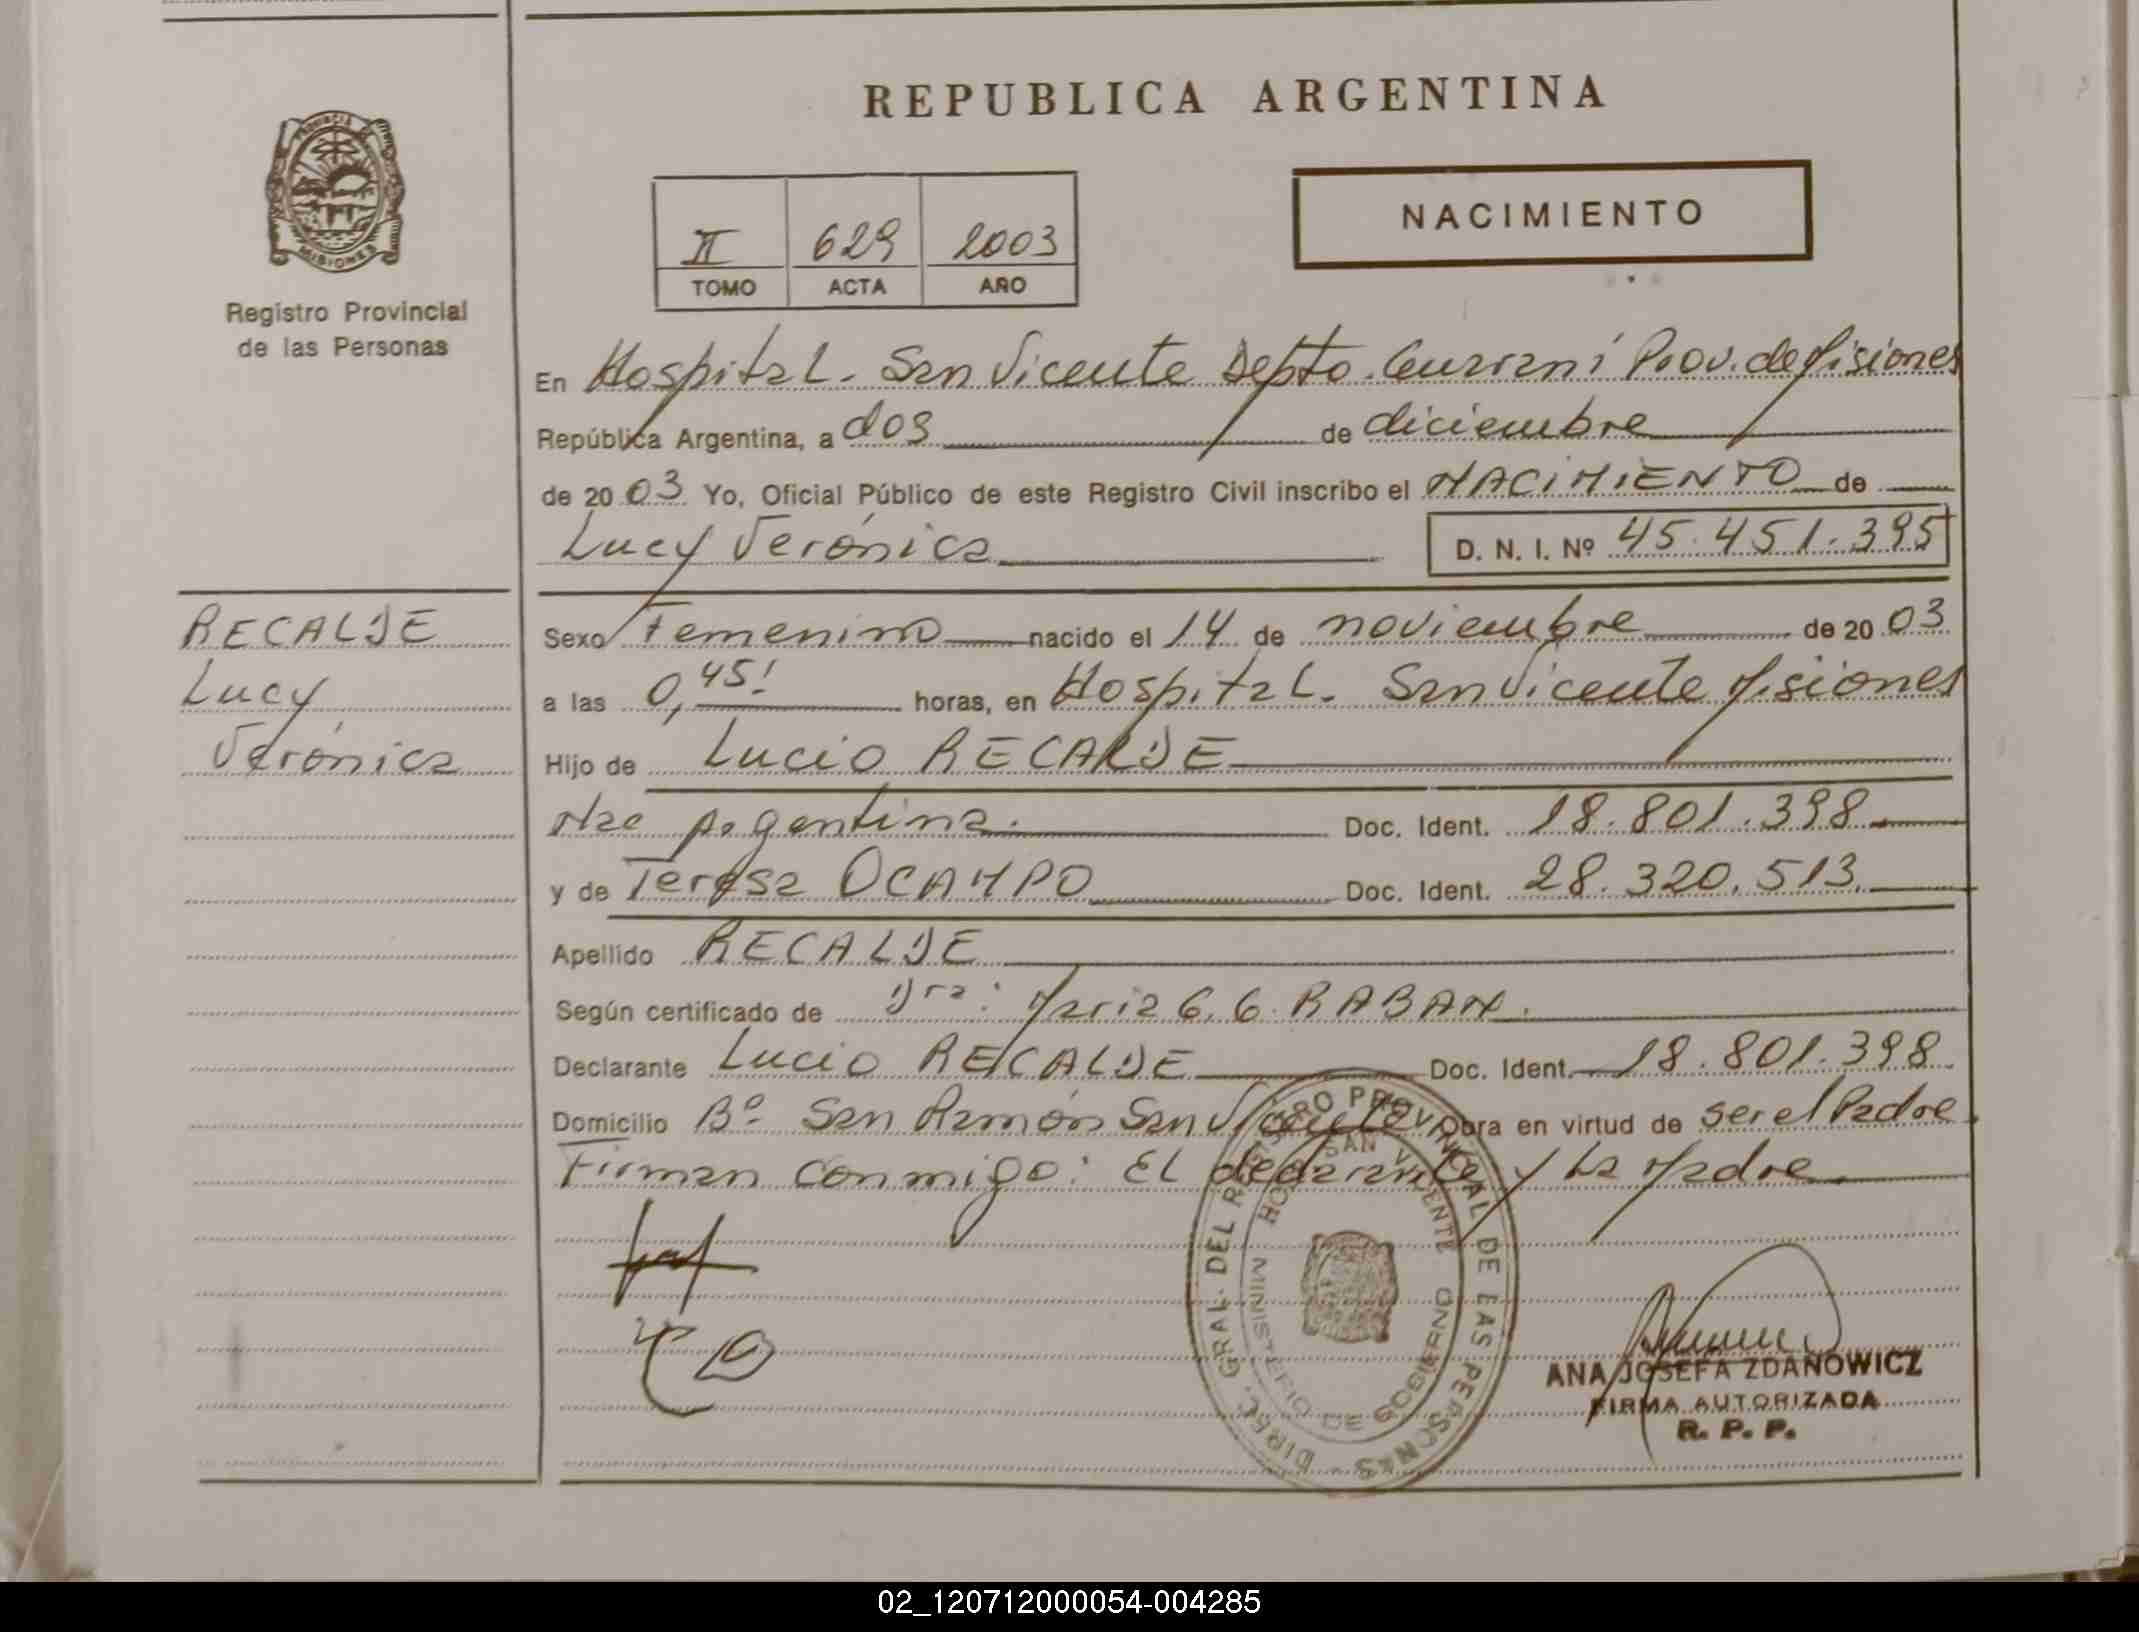 REPUBLICA ARGENTINA
PROVINCIA DE MISIONES
Registro Provincial
de las Personas
II 629 2003
TOMO ACTA AÑO
NACIMIENTO
En Hospital. San Vicente Depto. Guaraní Prov. de Misiones
República Argentina, a dos de diciembre
de 2003 Yo, Oficial Público de este Registro Civil inscribo el NACIMIENTO de
Lucy Verónica D. N. I. Nº 45.451.395
RECALDE
Lucy
Verónica
Sexo Femenino nacido el 14 de noviembre de 2003
a las 0,45' horas, en Hospital. San Vicente Misiones
Hijo de Lucio RECALDE
Nac Argentina. Doc. Ident. 18.801.398
y de Teresa OCAMPO Doc. Ident. 28.320.513.
Apellido RECALDE
Según certificado de Dra: Maria G. G. RABAN.
Declarante Lucio RECALDE Doc. Ident. 18.801.398.
Domicilio Bº San Ramón San Vicente Obra en virtud de ser el Padre
Firman conmigo: El declarante y La Madre.
DIREC. GRAL. DEL REGISTRO PROVINCIAL DE LAS PERSONAS
HOSP. SAN VICENTE
MINISTERIO DE GOBIERNO
ANA JOSEFA ZDANOWICZ
FIRMA AUTORIZADA
R. P. P.
02_120712000054-004285